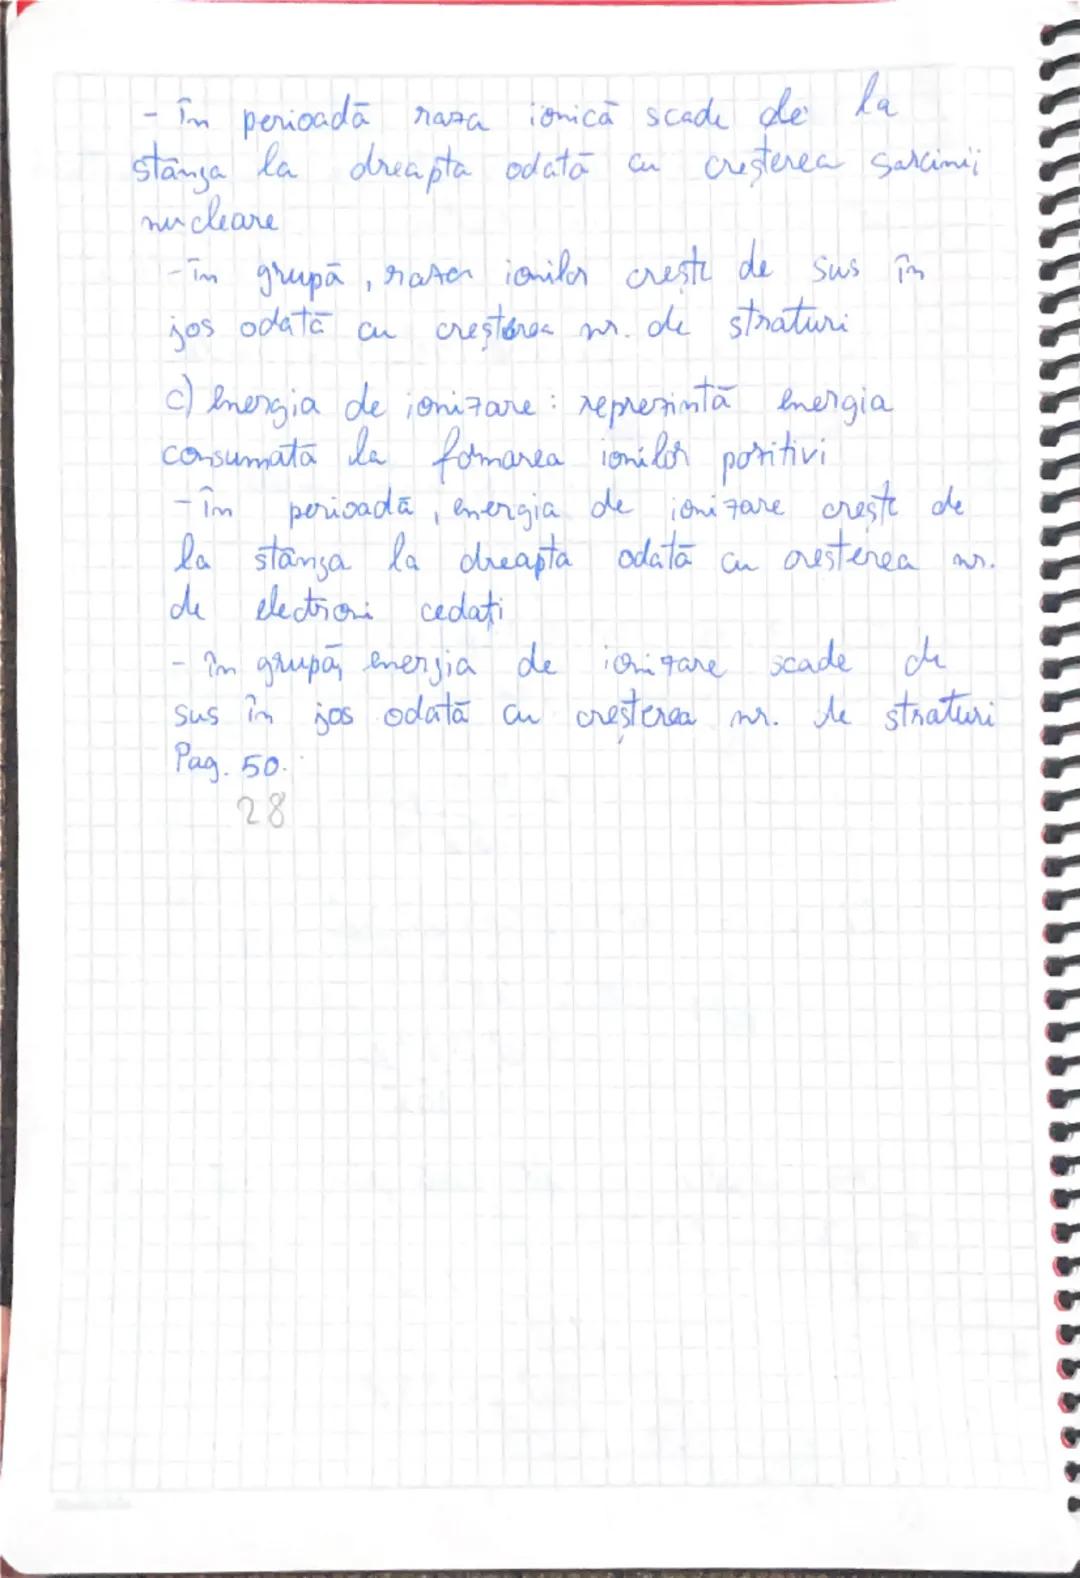 - în perioadă raza ionică scade de la
stânga la dreapta odată cu creșterea sarcinii
nucleare
- în grupă, raza ionilor crește de sus în
jos odată cu creșterea nr. de straturi
c) Energia de ionizare: reprezintă energia
consumată la formarea ionilor pozitivi
- în perioadă, energia de ionizare crește de
la stânga la dreapta odată cu creșterea nr.
de electroni cedați
- în grupă, energia de ionizare scade de
sus în jos odată cu creșterea nr. de straturi
Pag. 50.
28